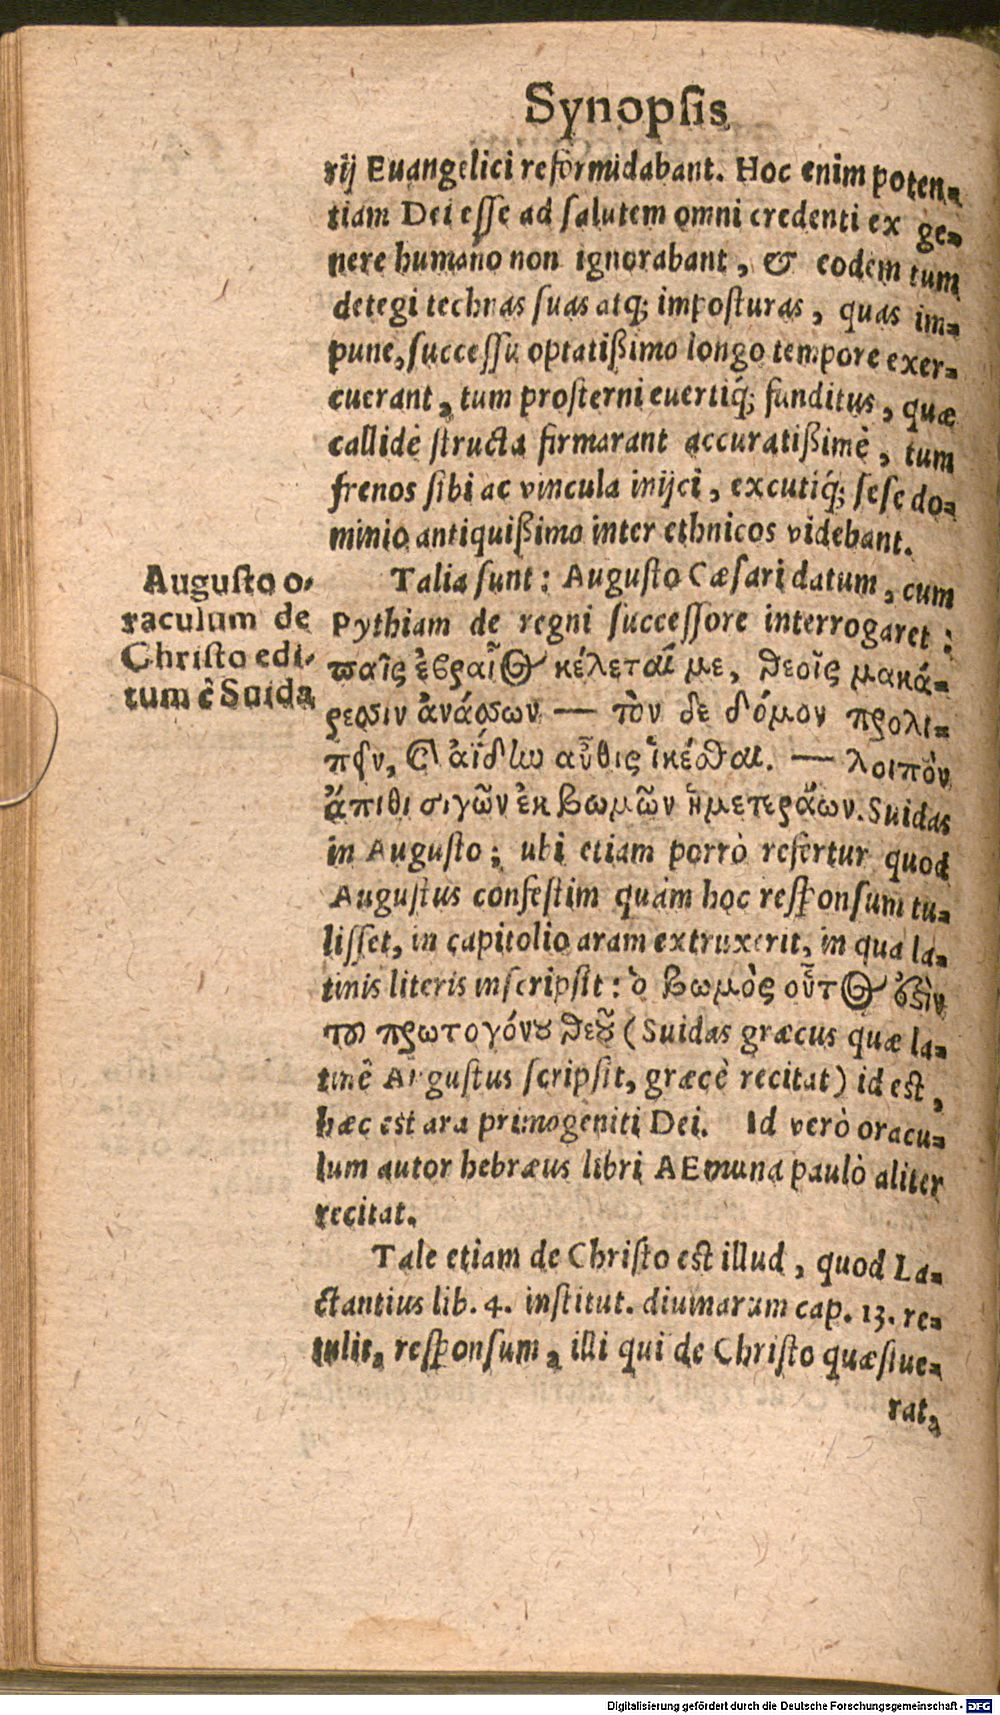 Synopsis
rij Euangelici reformidabant. Hoc enim poten-
tiam Dei eſſe ad ſalutem omni credenti ex ge-
nere humano non ignorabant, & eodem tum
detegi technas ſuas atq; impoſturas, quas im-
pune, ſucceſſu optatißimo longo tempore exer-
cuerant, tum proſterni euertiq́; funditus, quæ
callidè ſtructa firmarant accuratißimè, tum
frenos ſibi ac vincula inijci, excutiq́; ſeſe do-
minio antiquißimo inter ethnicos videbant.
Auguſto o-
raculum de
Chriſto edi-
tum ê Suida
Talia ſunt: Auguſto Cæſari datum, cum
Pythiam de regni ſucceſſore interrogaret:
παῖς ἑβραῖος κέλεταί με, θεοῖς μακά-
ρεσσιν ἀνάσσων — τὸν δε δόμον προλι-
πεῖν, καὶ ἀΐδlω αὖθις ἱκέσθαι. — λοιπὸν
ἄπιθι σιγῶν ἐκ βωμῶν ἡμετεράων. Suidas
in Auguſto; ubi etiam porrò refertur quod
Auguſtus confeſtim quàm hoc reſponſum tu-
liſſet, in capitolio aram extruxerit, in qua la-
tinis literis inſcripſit: ὁ βωμὸς οὗτος ἐστὶν
τοῦ πρωτογόνου θεοῦ (Suidas græcus quæ la-
tinê Auguſtus ſcripſit, græcè recitat) id est,
hæc est ara primogeniti Dei. Id verò oracu-
lum autor hebræus libri AEmuna paulò aliter
recitat.
Tale etiam de Chriſto est illud, quod La-
ctantius lib. 4. inſtitut. diuinarum cap. 13. re-
tulit, reſponſum, illi qui de Chriſto quæſiue-
rat,
Digitalisierung gefördert durch die Deutsche Forschungsgemeinschaft - DFG